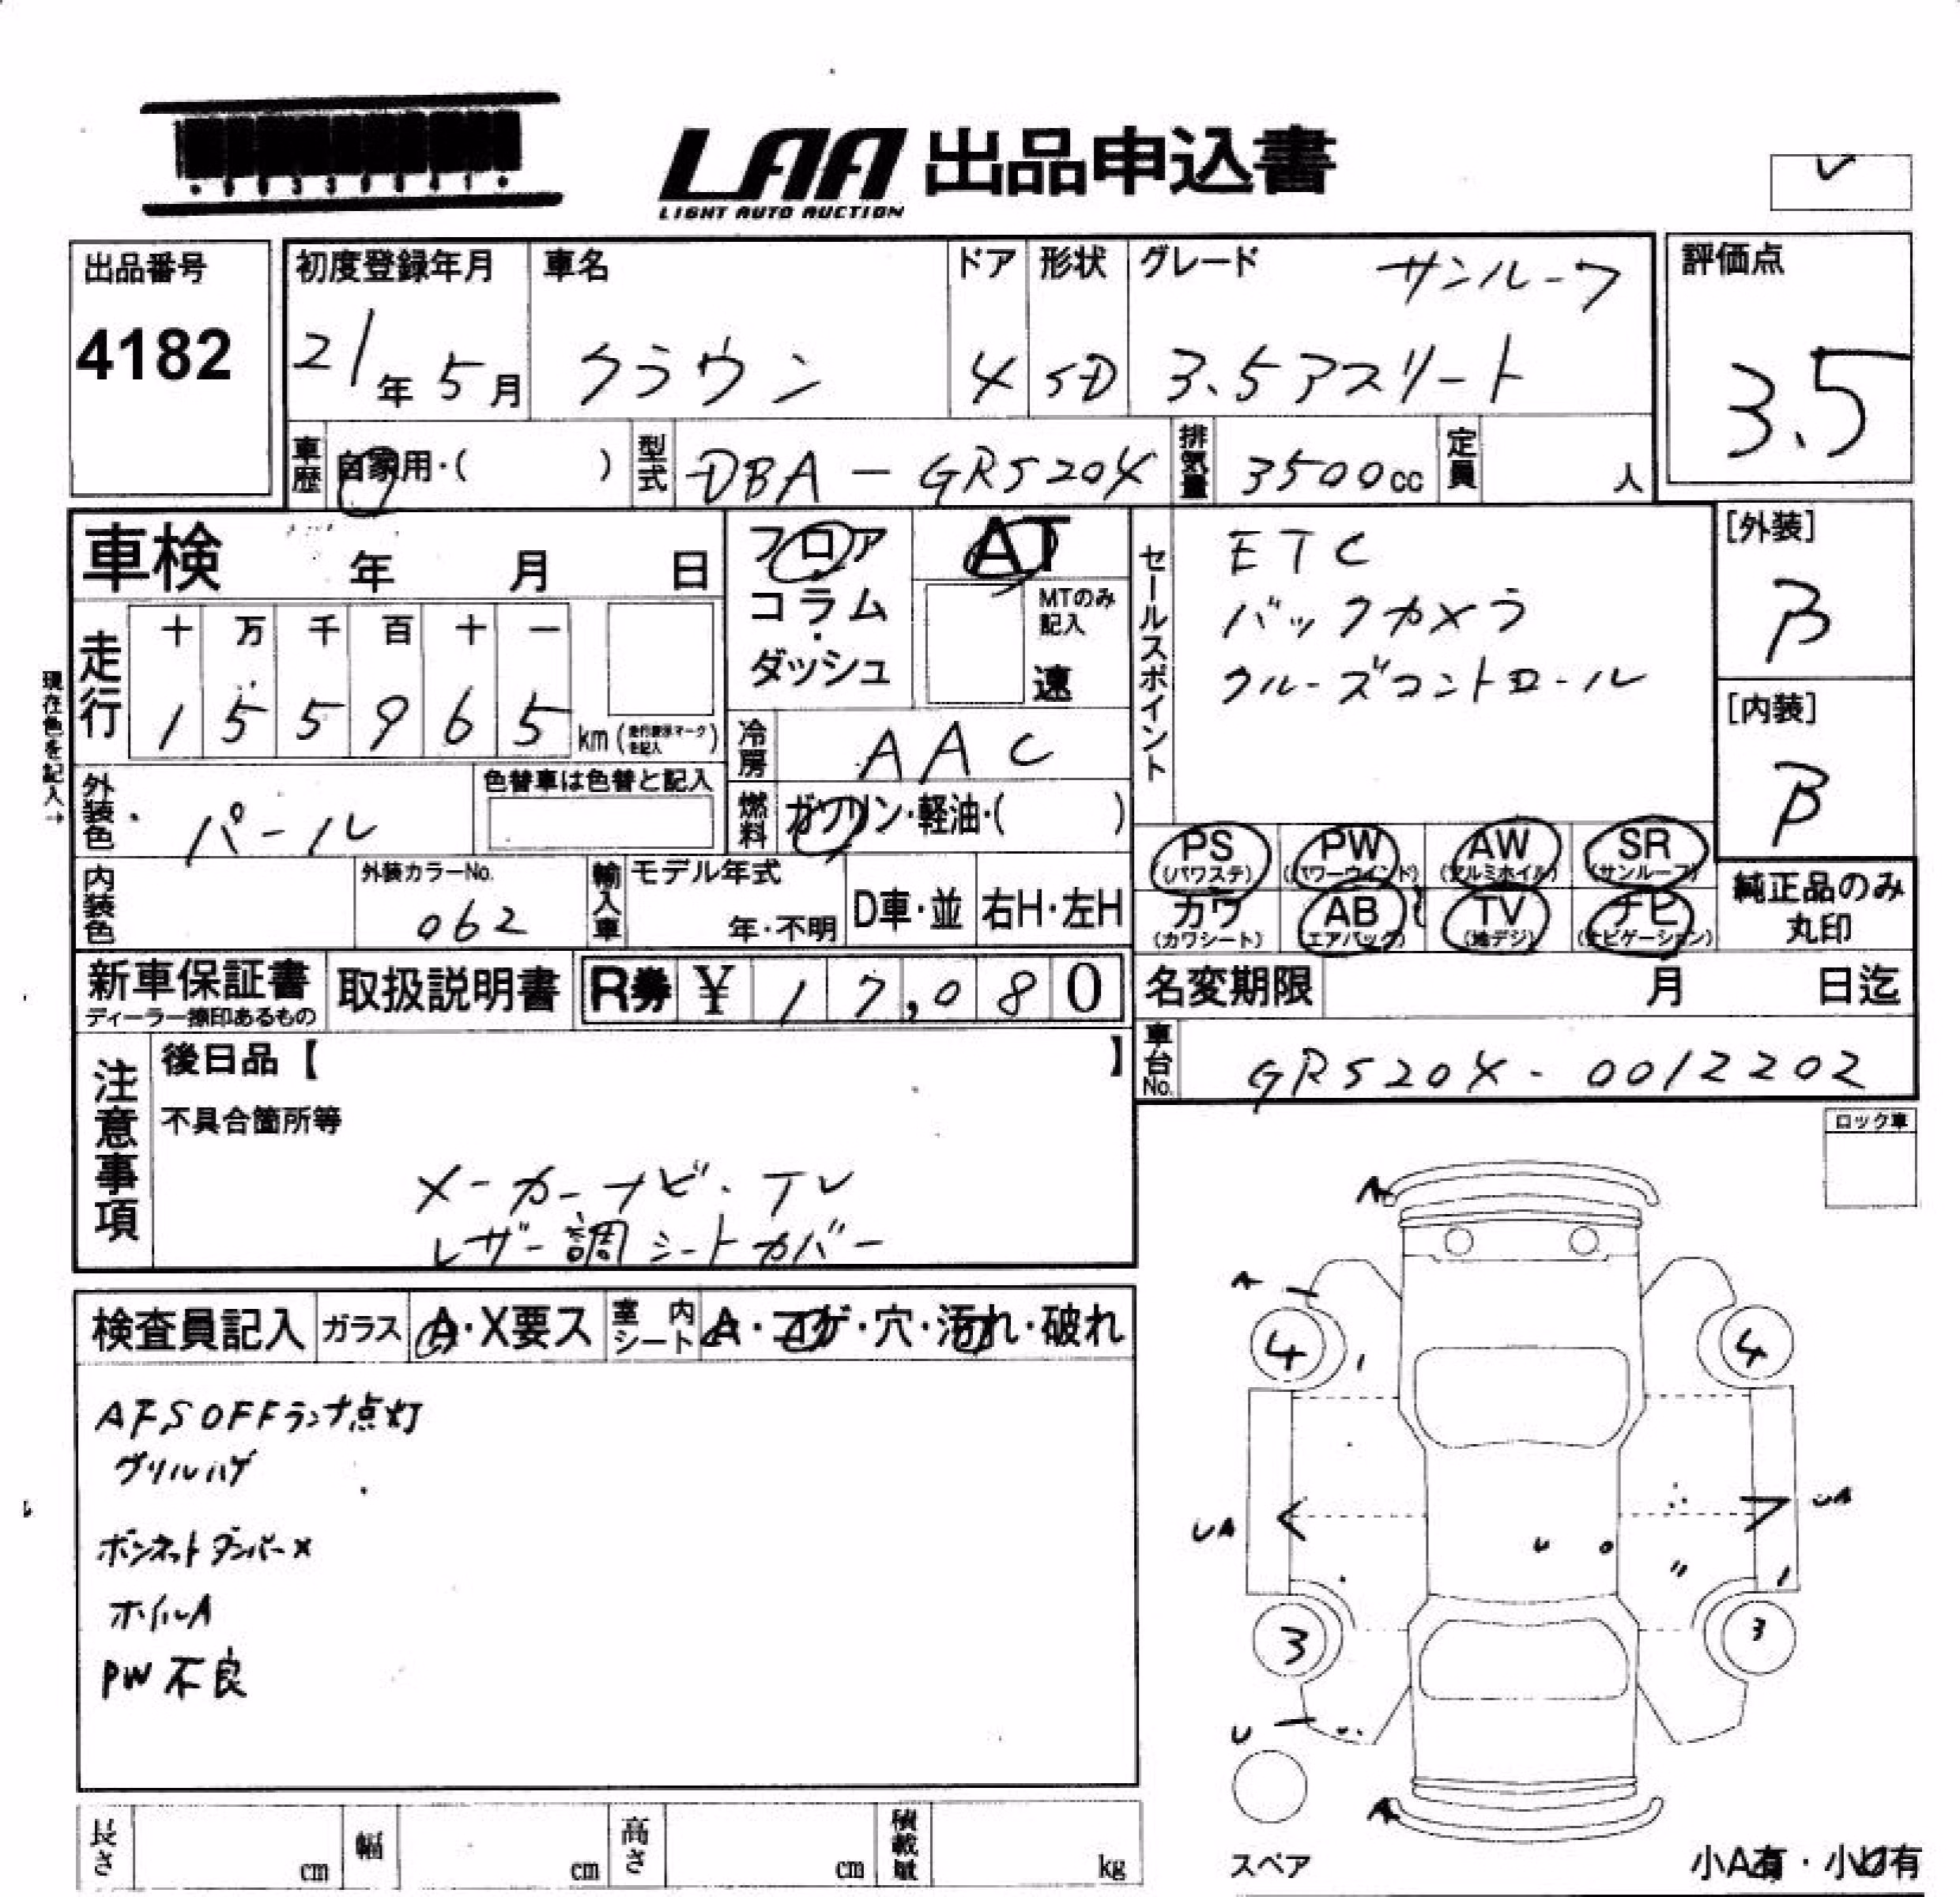 LAA 出品申込書
LIGHT AUTO AUCTION
出品番号
4182
初度登録年月
21年5月
車名
クラウン
ドア
4
形状
SD
グレード
サンルーフ
3.5アスリート
評価点
3.5
車歴
自家用・( )
型式
DBA-GRS204
排気量
3500cc
定員
人
車検 年 月 日
フロア
コラム
・
ダッシュ
AT
MTのみ
記入
速
セールスポイント
ETC
バックカメラ
クルーズコントロール
[外装]
B
[内装]
B
現在色を記入→
走行
十 万 千 百 十 一
1 5 5 9 6 5 km
冷房
AAC
外装色
パール
色替車は色替と記入
燃料
ガソリン・軽油・( )
PS (パワステ)
PW (パワーウインド)
AW (アルミホイル)
SR (サンルーフ)
カワ (カワシート)
AB (エアバック)
TV (地デジ)
ナビ (ナビゲーション)
純正品のみ
丸印
内装色
外装カラーNo.
062
輸入車
モデル年式
年・不明
D車・並
右H・左H
新車保証書
ディーラー捺印あるもの
取扱説明書
R券 ¥ 17,080
名変期限 月 日迄
車台No.
GRS204-0012202
注意事項
後日品【 】
不具合箇所等
メーカーナビ・TV
レザー調シートカバー
ロック車
検査員記入
ガラス
A・X要ス
室内シート
A・コゲ・穴・汚れ・破れ
AFS OFFランプ点灯
グリルハゲ
ボンネットダンパー×
ホイルA
PW不良
A
A
4
4
UA
UA
3
3
U
A
スペア
小A有・小U有
長さ cm
幅 cm
高さ cm
積載量 kg